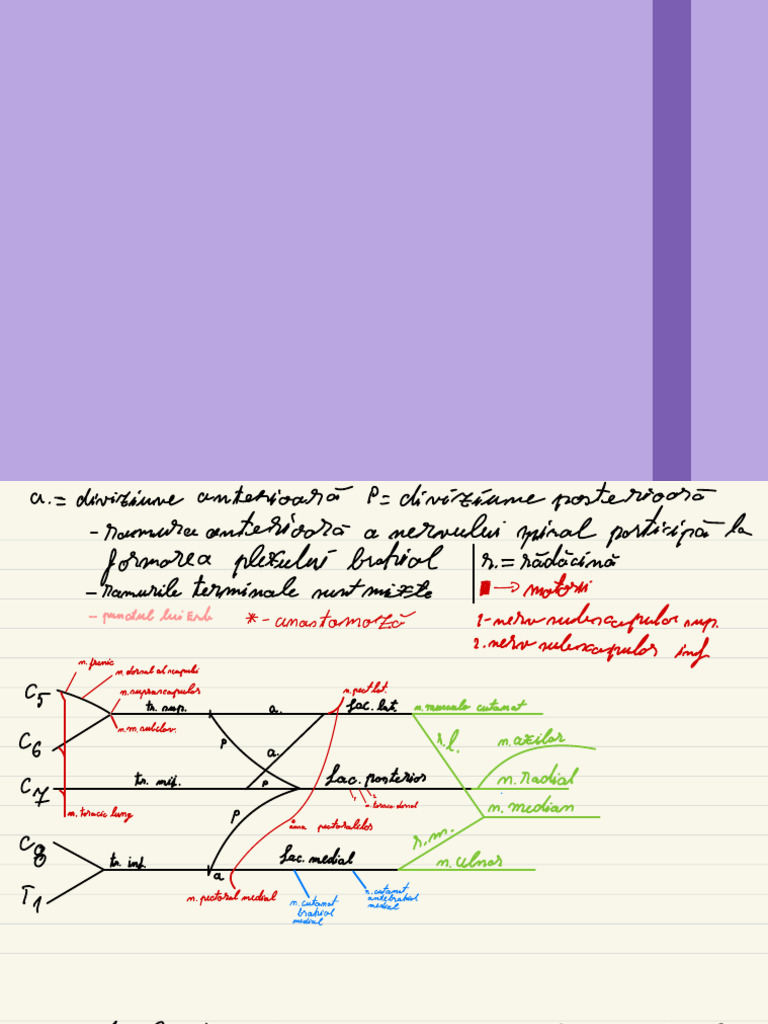 a. = diviziune anterioară P = diviziune posterioară
- Ramura anterioară a nervului spinal participă la
formarea plexului brahial
r. = rădăcină
- Ramurile terminale sunt mixte
→ motorii
- punctul lui Erb
* - anastomoză
1 - nerv subscapular sup.
2. nerv subscapular inf
n. frenic
n. dorsal al scapulei
n. suprascapular
n. pect. lat.
C5
tr. sup.
a.
fac. lat.
n. musculo cutanat
n. m. subclav.
P
r.l.
n. axilar
C6
a.
C7
tr. mij.
P
fac. posterior
n. Radial
n. toracic lung
P
1
2
n. toraco dorsal
n. median
ansa pectoralilor
r.m.
C8
tr. inf.
fac. medial
n. ulnar
a
T1
n. pectoral medial
n. cutanat
brahial
medial
n. cutanat
antebrahial
medial